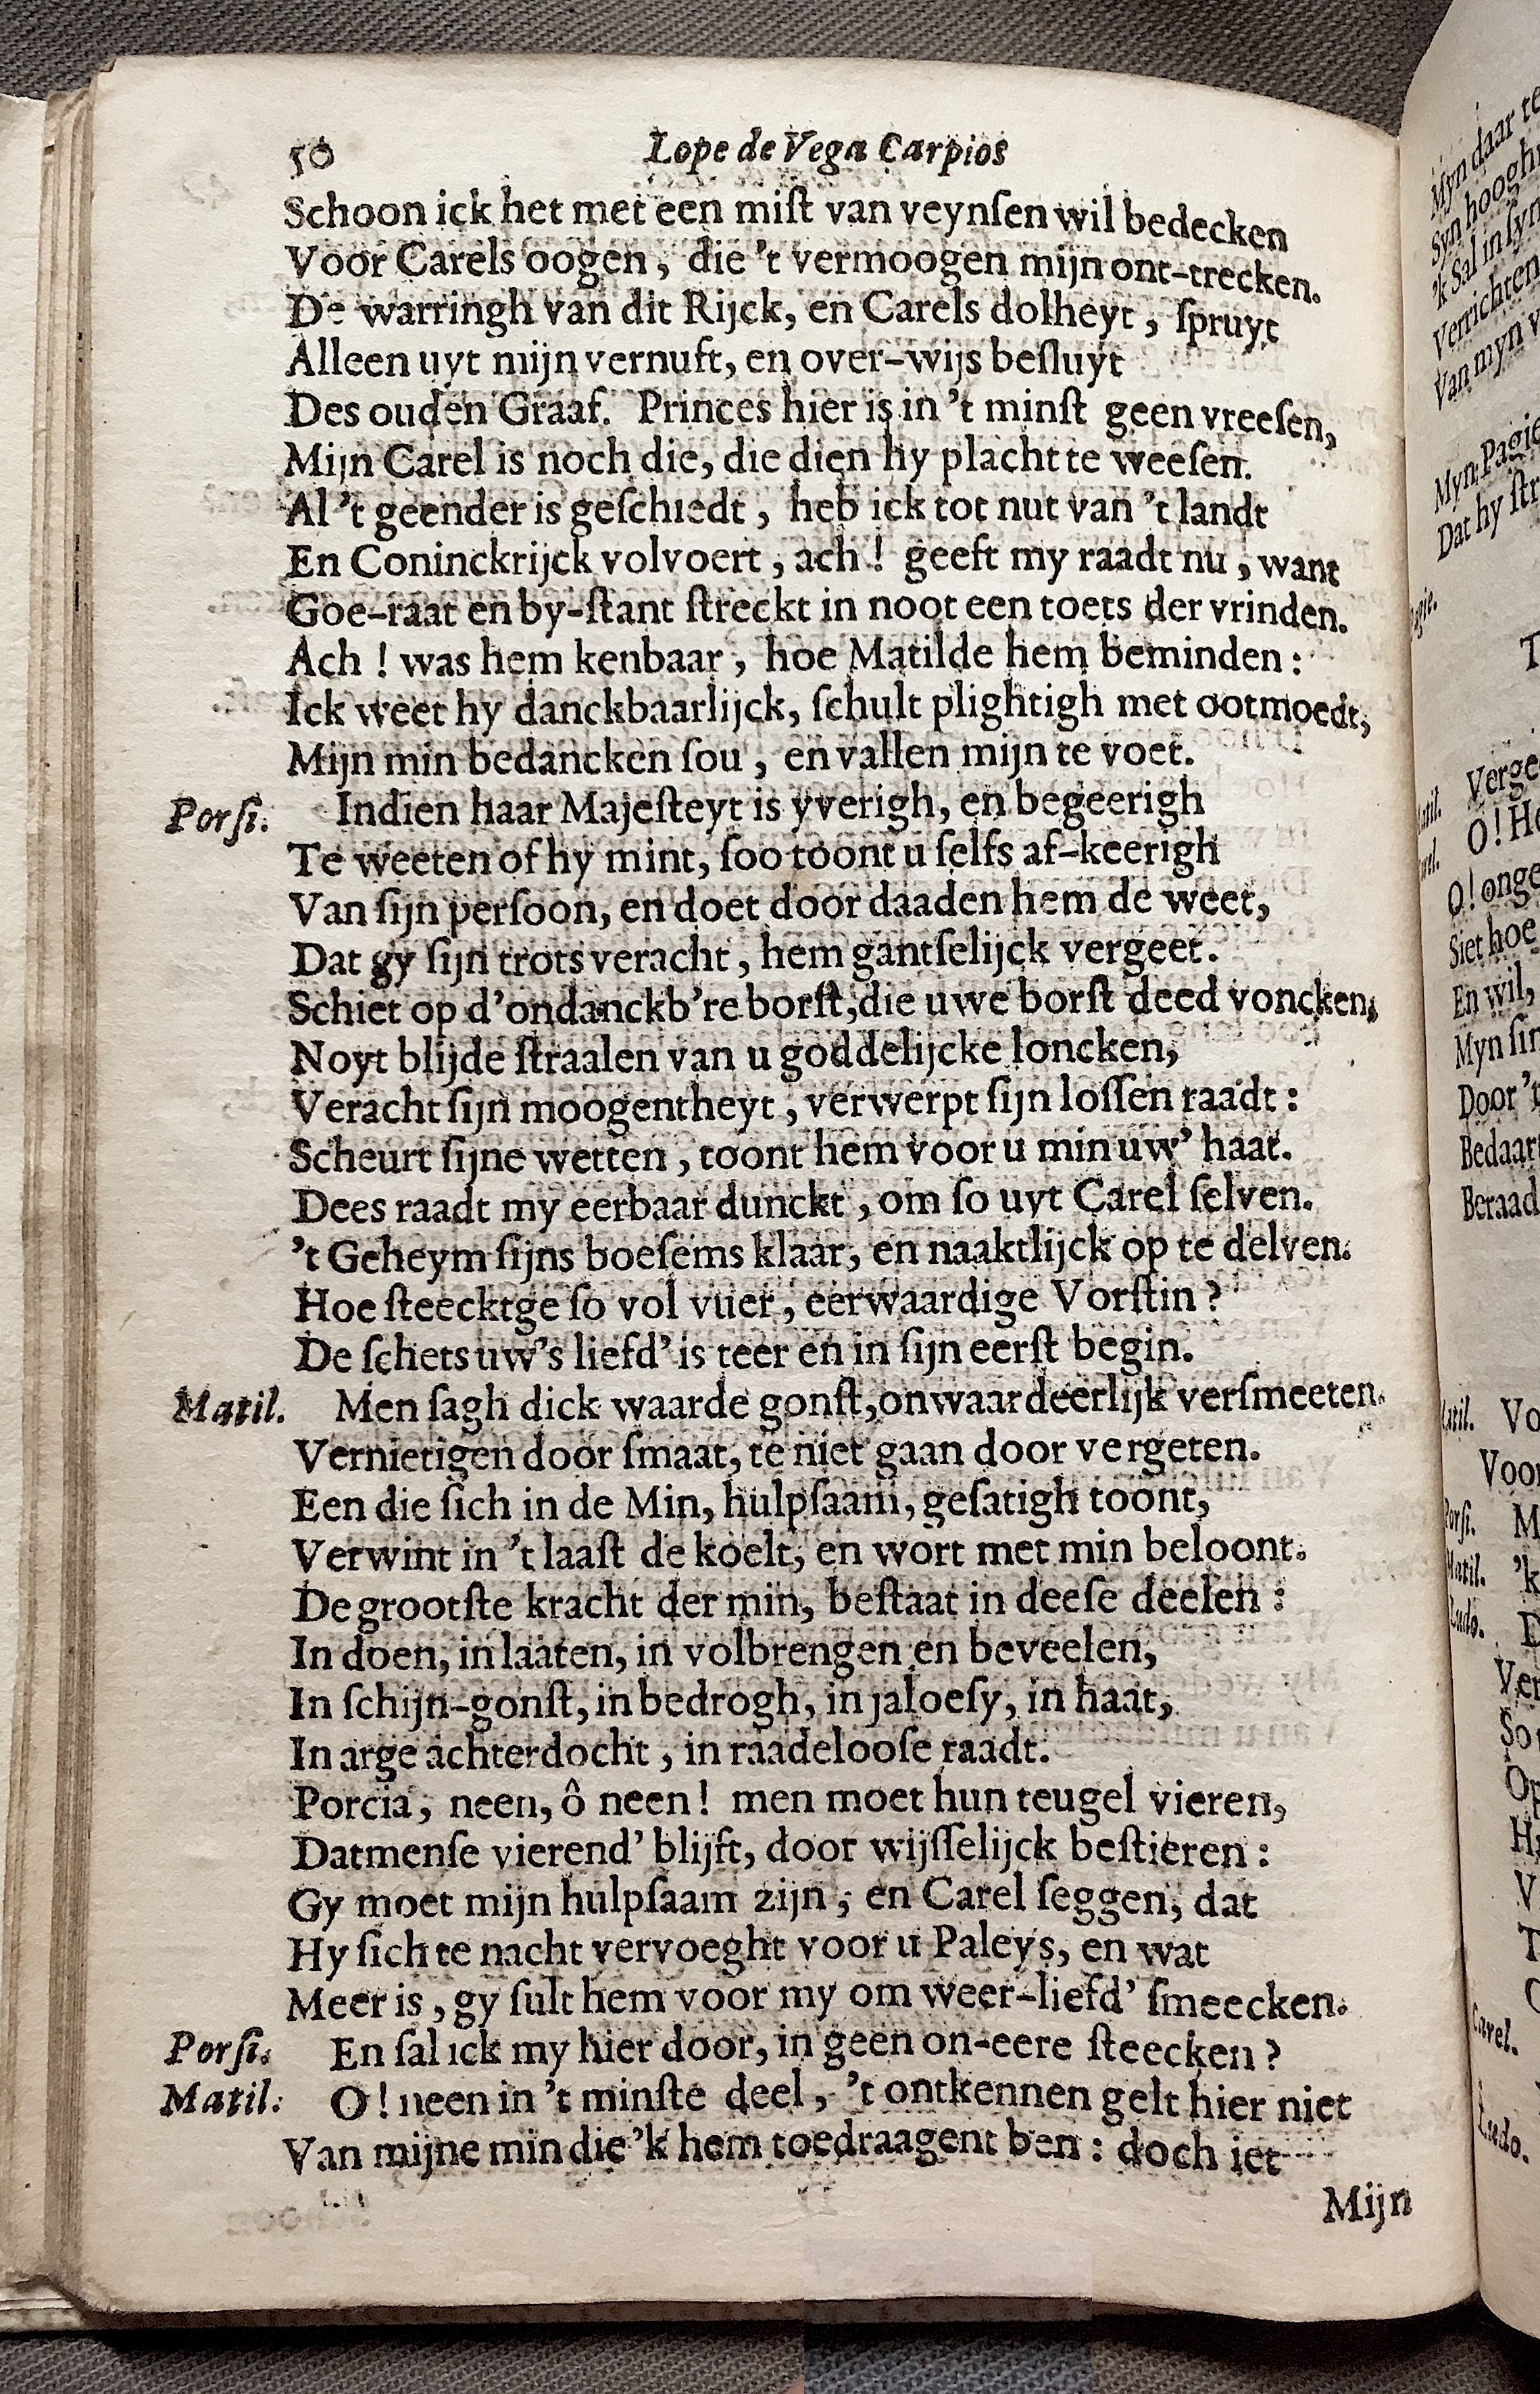 50 Lope de Vega Carpios
Schoon ick het met een miſt van veynſen wil bedecken
Voor Carels oogen, die 't vermoogen mijn ont-trecken.
De warringh van dit Rijck, en Carels dolheyt, ſpruyt
Alleen uyt mijn vernuft, en over-wijs beſluyt
Des ouden Graaf. Princes hier is in 't minſt geen vreeſen,
Mijn Carel is noch die, die dien hy placht te weeſen.
Al 't geender is geſchiedt, heb ick tot nut van 't landt
En Coninckrijck volvoert, ach! geeft my raadt nu, want
Goe-raat en by-ſtant ſtreckt in noot een toets der vrinden.
Ach! was hem kenbaar, hoe Matilde hem beminden:
Ick weet hy danckbaarlijck, ſchult plightigh met ootmoedt,
Mijn min bedancken ſou, en vallen mijn te voet.
Porſi. Indien haar Majeſteyt is yverigh, en begeerigh
Te weeten of hy mint, ſoo toont u ſelfs af-keerigh
Van ſijn perſoon, en doet door daaden hem de weet,
Dat gy ſijn trots veracht, hem gantſelijck vergeet.
Schiet op d'ondanckb're borſt, die uwe borſt deed voncken,
Noyt blijde ſtraalen van u goddelijcke loncken,
Veracht ſijn moogentheyt, verwerpt ſijn loſſen raadt:
Scheurt ſijne wetten, toont hem voor u min uw' haat.
Dees raadt my eerbaar dunckt, om ſo uyt Carel ſelven.
't Geheym ſijns boeſems klaar, en naaktlijck op te delven.
Hoe ſteecktge ſo vol vuer, eerwaardige Vorſtin?
De ſchets uw's liefd' is teer en in ſijn eerſt begin.
Matil. Men ſagh dick waarde gonſt, onwaardeerlijk verſmeeten.
Vernietigen door ſmaat, te niet gaan door vergeten.
Een die ſich in de Min, hulpſaam, geſatigh toont,
Verwint in 't laaſt de koelt, en wort met min beloont.
De grootſte kracht der min, beſtaat in deeſe deelen:
In doen, in laaten, in volbrengen en beveelen,
In ſchijn-gonſt, in bedrogh, in jaloeſy, in haat,
In arge achterdocht, in raadelooſe raadt.
Porcia, neen, ô neen! men moet hun teugel vieren,
Datmenſe vierend' blijft, door wijſſelijck beſtieren:
Gy moet mijn hulpſaam zijn, en Carel ſeggen, dat
Hy ſich te nacht vervoeght voor u Paleys, en wat
Meer is, gy ſult hem voor my om weer-liefd' ſmeecken.
Porſi. En ſal ick my hier door, in geen on-eere ſteecken?
Matil. O! neen in 't minſte deel, 't ontkennen gelt hier niet
Van mijne min die 'k hem toedraagent ben: doch iet
Mijn